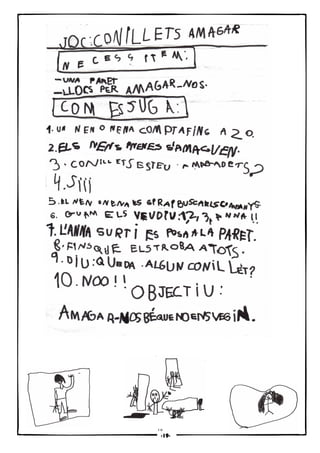 JOC: CONILLETS AMAGAR
NECESSITEM:
-UNA PARET
-LLOCS PER AMAGAR-NOS.
COM ES JUGA:
1. UN NEN O NENA COMPTA FINS A 20.
2. ELS NENS I NENES S'AMAGUEN.
3. CONILLETS ESTEU AMAGADETS?
4. SIII
5. EL NEN O NENA ES GIRA I BUSCA ELS COMPANYS
6. QUAN ELS VEU DIU: 1, 2, 3, ANNA!!
7. L'ANNA SURT I ES POSA A LA PARET.
8. FINS QUE ELS TROBA A TOTS.
9. DIU: QUEDA ALGUN CONILLET?
10. NOO!!
OBJECTIU:
AMAGAR-NOS BÉ QUE NO ENS VEGIN.
-19-